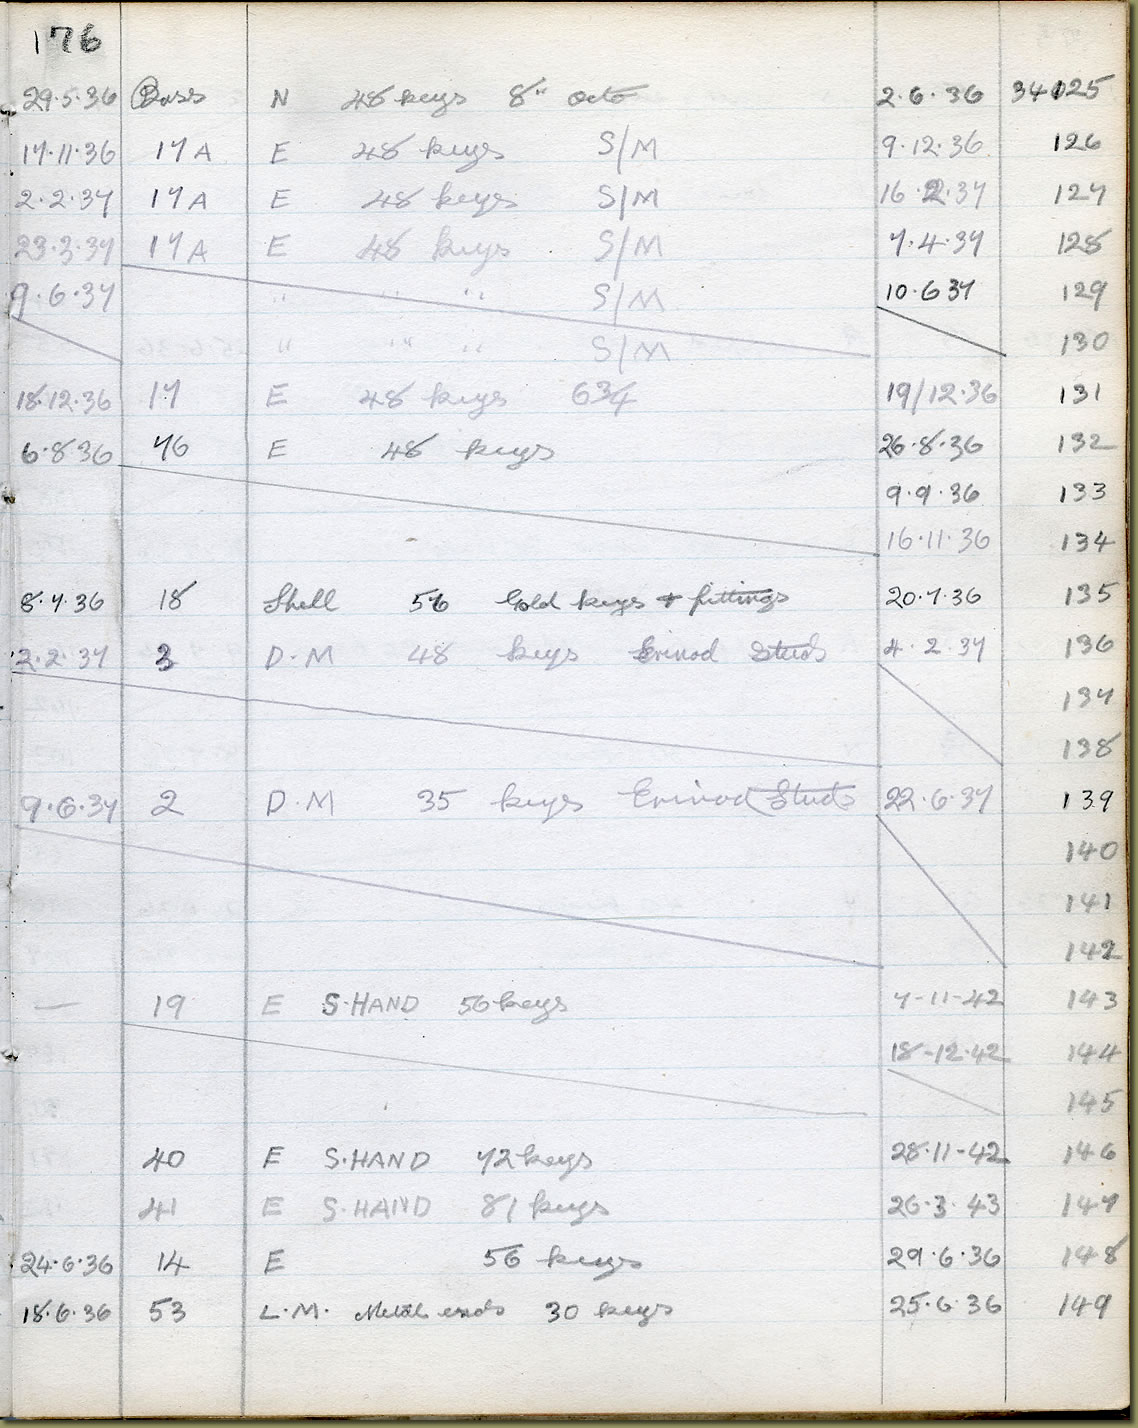 176
29.5.36 Bass N 48 keys 8" octo 2.6.36 34125
17.11.36 17A E 48 keys S/M 9.12.36 126
2.2.37 17A E 48 keys S/M 16.2.37 127
23.3.37 17A E 48 keys S/M 7.4.37 128
9.6.37 " " " S/M 10.6 37 129
" " " S/M 130
18.12.36 17 E 48 keys 634 19/12.36 131
6.8 36 76 E 48 keys 26.8.36 132
9.9.36 133
16.11.36 134
8.7.36 18 Shell 56 Gold keys + fittings 20.7.36 135
2.2.37 3 D.M 48 keys Erinod Studs 4.2.37 136
137
138
9.6.37 2 D.M 35 keys Erinod Studs 22.6.37 139
140
141
142
— 19 E S.HAND 56 keys 7-11-42 143
18-12.42 144
145
40 E S.HAND 72 keys 28.11-42 146
41 E S.HAND 81 keys 26.3.43 147
24.6.36 14 E 56 keys 29.6.36 148
18.6.36 53 L.M. Metal ends 30 keys 25.6.36 149